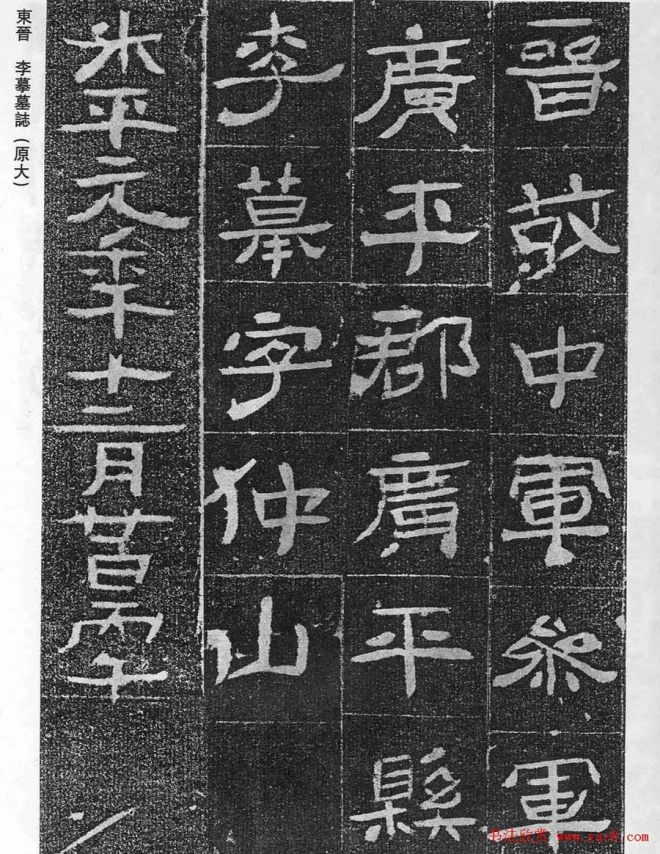 晉故中軍參軍
廣平郡廣平縣
李摹字仲山
升平元年十二月廿日丙午
東晉 李摹墓誌（原大）
书法欣赏 www.yac8.com